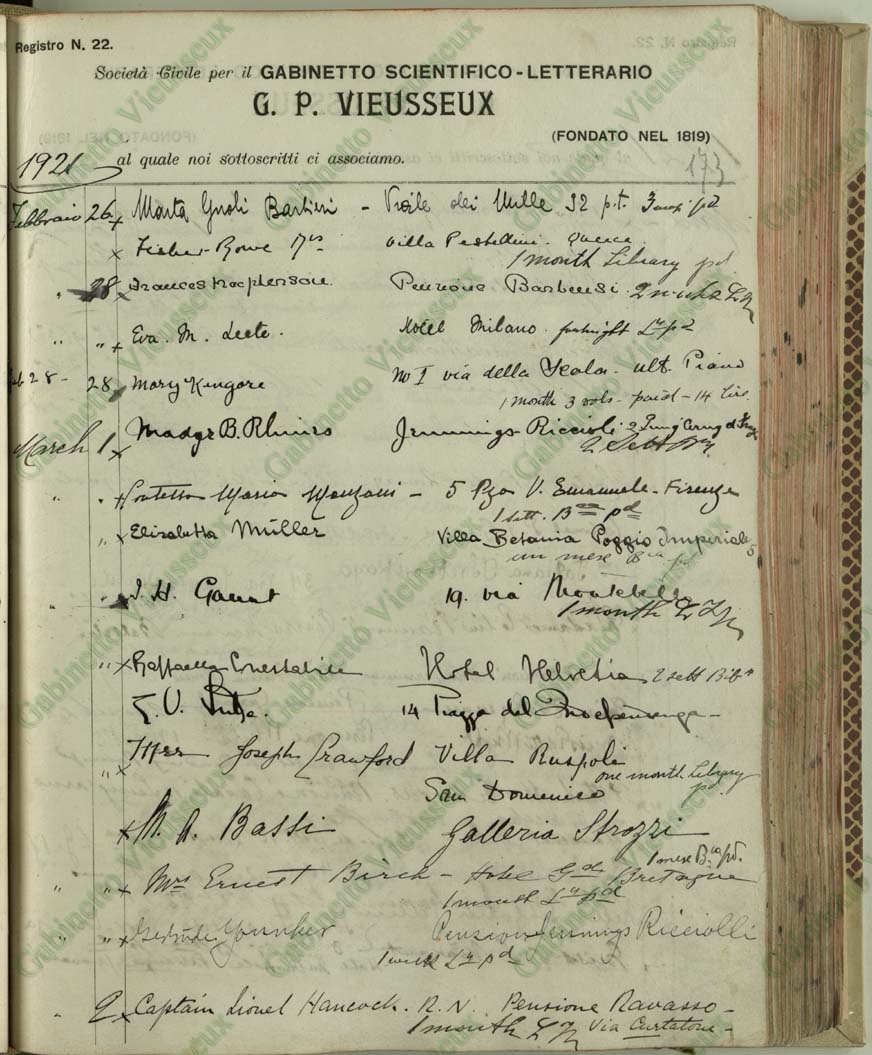 Registro N. 22.
Società Civile per il GABINETTO SCIENTIFICO-LETTERARIO
G. P. VIEUSSEUX
(FONDATO NEL 1819)
1921 al quale noi sottoscritti ci associamo. 173
Febbraio 26 x Marta Gnoli Barbieri - Viale dei Mille 32 p.t. 3
x Fisher-Rowe Mrs Villa Pestellini.
1 month Library pd
" 28 x Frances Macpherson. Pensione Barbensi.
" " x Eva. M. Leete. Hotel Milano. fortnight Ly pd
Feb 28 - 28 Mary Kingore No I via della Scala - ult. Piano
1 month 3 vols - paid - 14 lire.
March 1 x Madge B. Jennings-Riccioli 2
2 Sett
" " x Contessa Maria Manzoni - 5 Pza V. Emanuele - Firenze
1 sett. pd
" x Elisabetta Müller Villa Betania Poggio Imperiale 5
un mese
" " J. H. 19. via Montebello
1 month
" x Raffaella Constabile Hotel Helvetia 2 sett
14 Piazza del Indipendenza -
" x Mrs Joseph Crawford Villa Ruspoli
one month Library
San Domenico pd.
x M. A. Bassi Galleria Strozzi
1 mese pd.
" " x Mrs Ernest Birch - Hotel Gde Bretagne
1 month Ly pd
" " x Gertrude Younker Pension Jennings Ricciolli
1 week Ly pd
" 2 x Captain Lionel Hancock. R.N. Pensione Ravasso -
1 month Via Curtatone -
Gabinetto Vieusseux